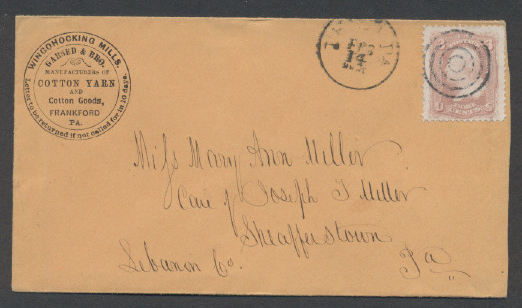 WINGOHOCKING MILLS.
GARSED & BRO.
MANUFACTURERS OF
COTTON YARN
AND
Cotton Goods,
FRANKFORD
PA.
Letter to be returned if not called for in 10 days.
PA
14
Miſs Mary Ann Miller
Care of Joseph T Miller
Sheafferstown
Lebanon Co. Pa